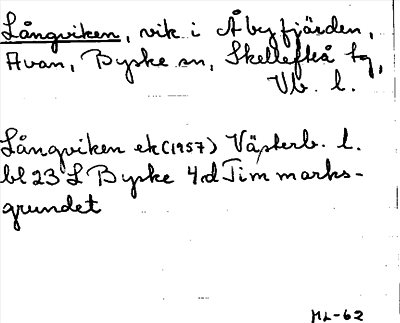 Långviken, vik i Åbyfjärden,
Avan, Byske sn, Skellefteå tg,
Vb. l.
Långviken ek (1957) Västerb. l.
bl 23 L Byske 4d Timmarks-
grundet
ML-62